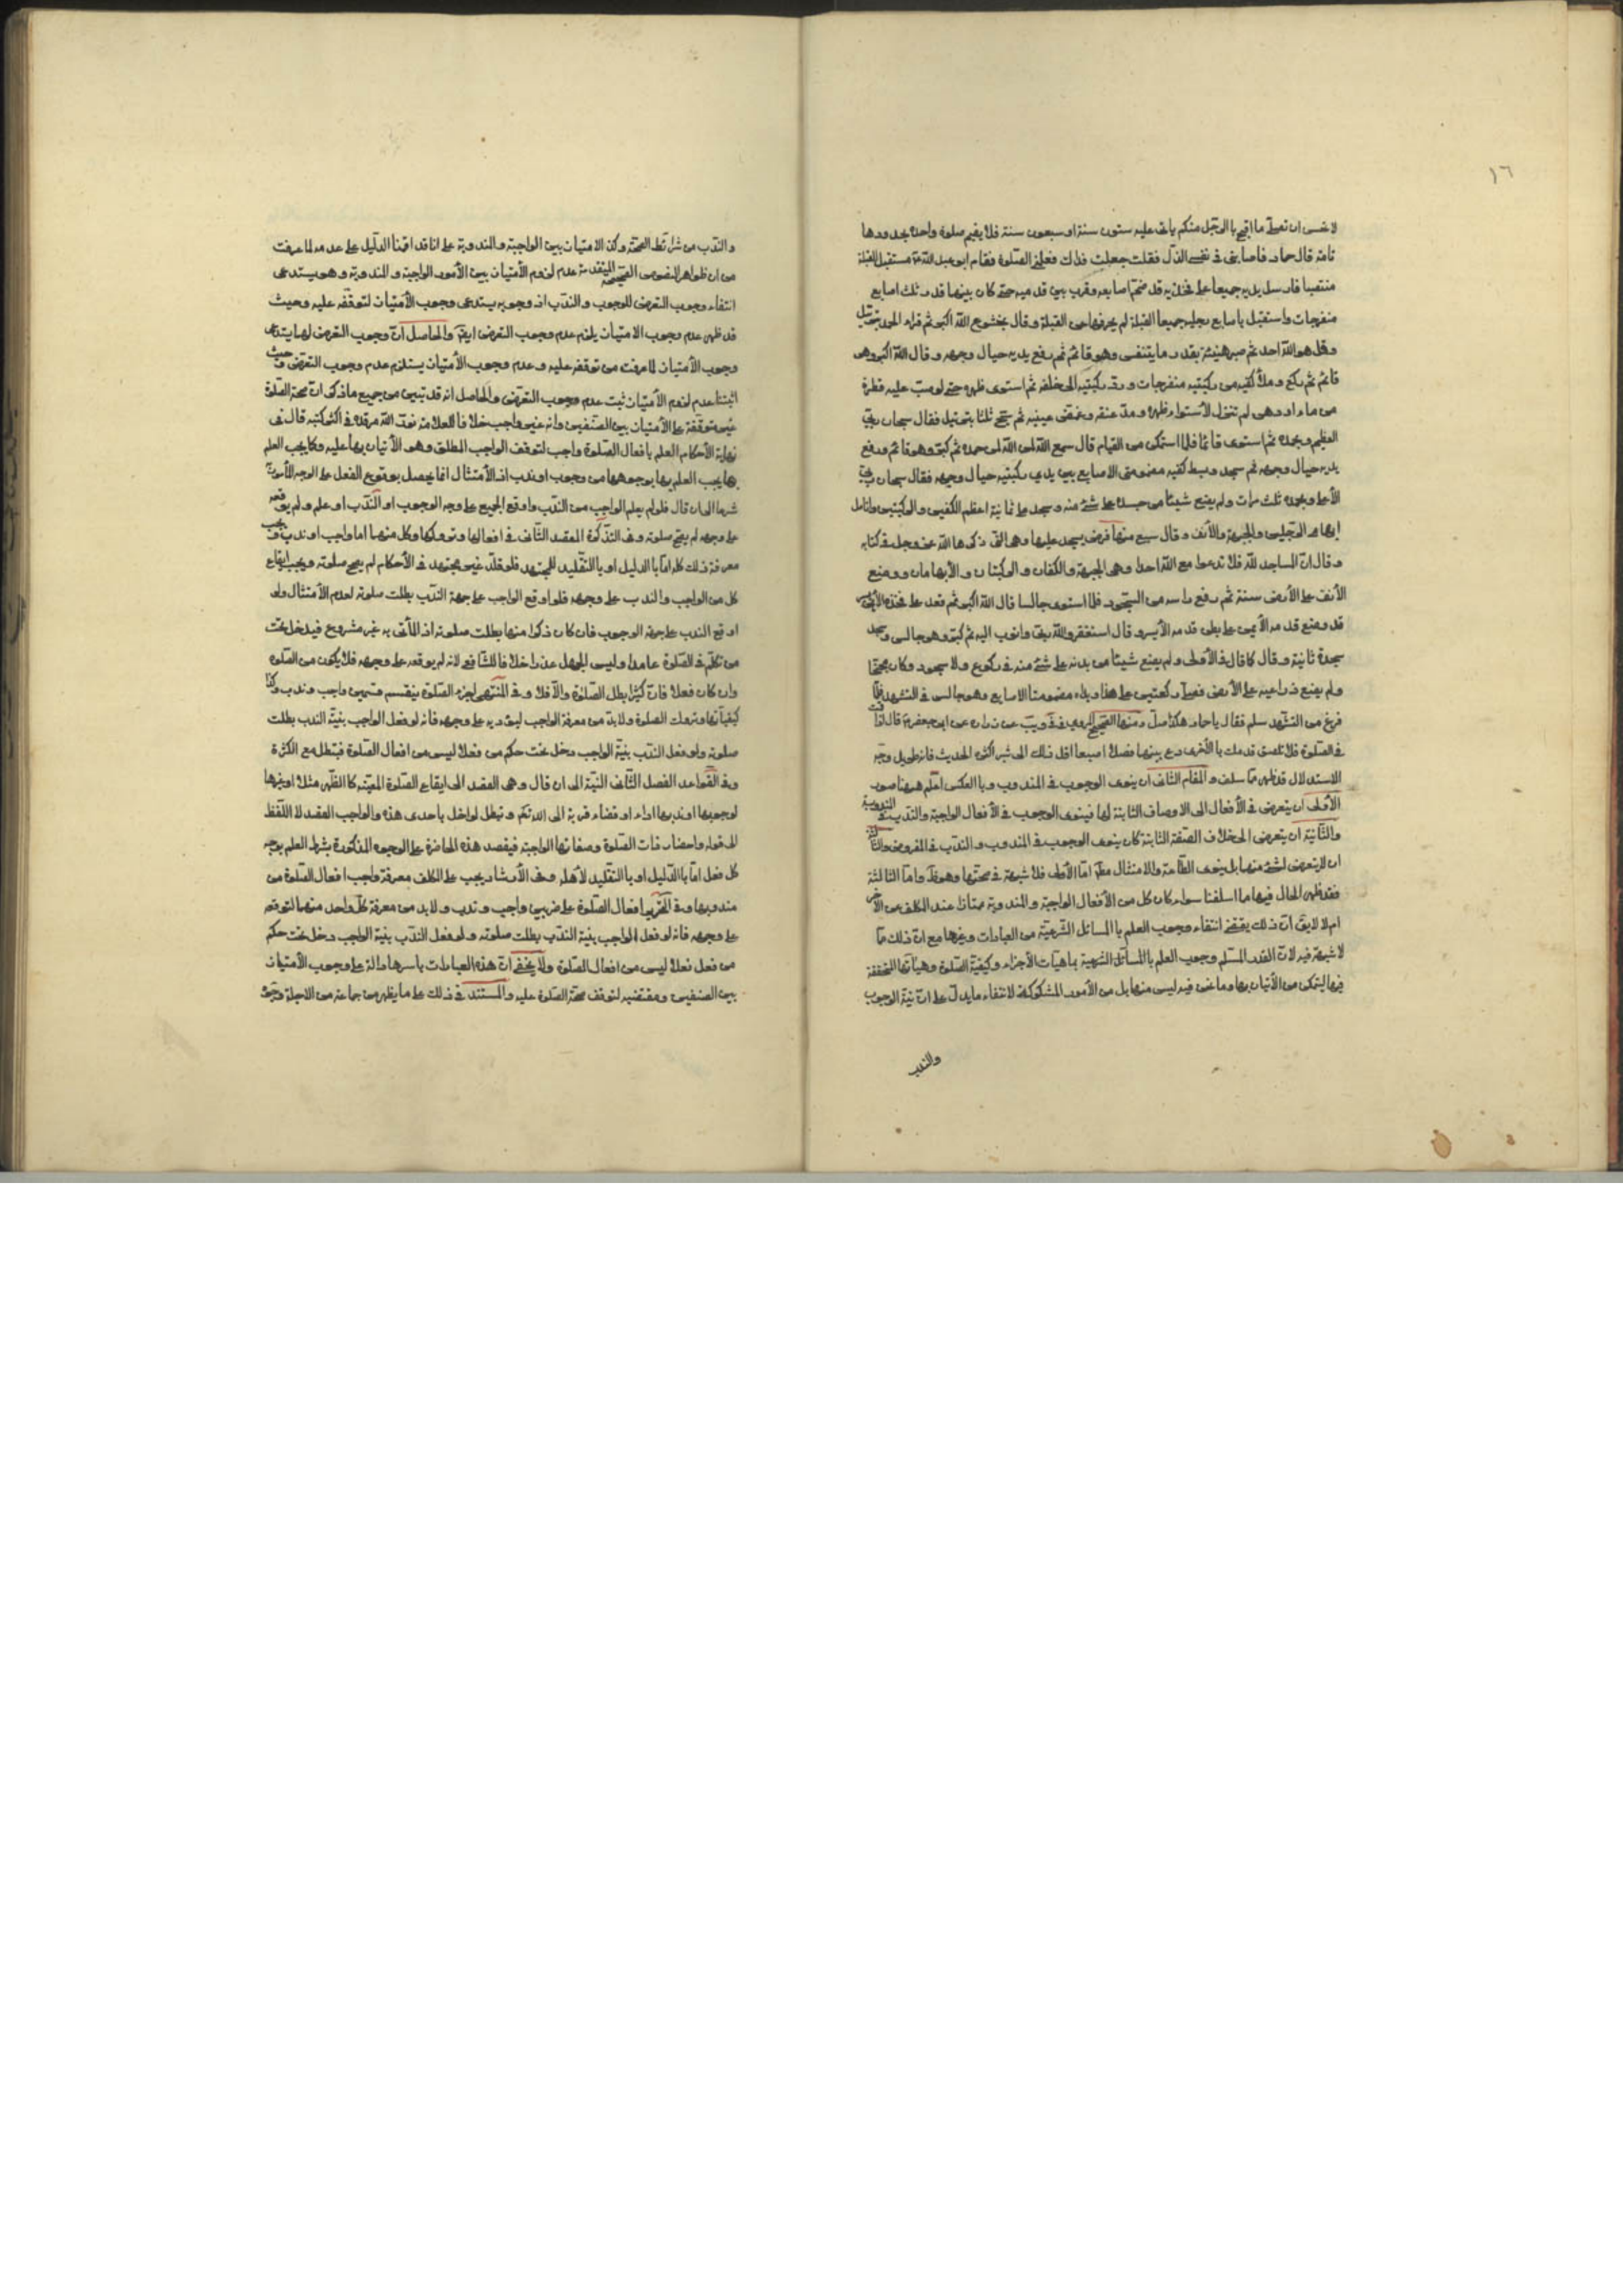 ١٦
لا تحسن ان تصلى ما اقبح بالرجل منكم ياتى عليه ستون سنة او سبعون سنة فلا يقيم صلوة واحدة بحدودها
تامة قال حماد فاصابنى فى نفسى الذل فقلت جعلت فداك فعلمنى الصلوة فقام ابو عبد الله ع مستقبل القبلة
منتصبا فارسل يديه جميعا على فخذيه قد ضم اصابعه وقرب بين قدميه حتى كان بينهما قدر ثلث اصابع
منفرجات واستقبل باصابع رجليه جميعا القبلة لم يحرفهما عن القبلة وقال بخشوع الله اكبر ثم قراء الحمد بترتيل
وقل هو الله احد ثم صبر هنيئة بقدر ما يتنفس وهو قائم ثم رفع يديه حيال وجهه وقال الله اكبر وهو
قائم ثم ركع وملأ كفيه من ركبتيه منفرجات ورد ركبتيه الى خلفه ثم استوى ظهره حتى لو صب عليه قطرة
من ماء او دهن لم تزل لأستواء ظهره ومد عنقه وغمض عينيه ثم سبح ثلثا بترتيل فقال سبحان ربى
العظيم وبحمده ثم استوى قائما فلما استمكن من القيام قال سمع الله لمن حمده ثم كبر وهو قائم ورفع
يديه حيال وجهه ثم سجد وبسط كفيه مضمومتى الاصابع بين يدى ركبتيه حيال وجهه فقال سبحان ربى
الأعلى وبحمده ثلث مرات ولم يضع شيئا من جسده على شئ منه وسجد على ثمانية اعظم الكفين والركبتين وانامل
ابهامى الرجلين والجبهة والأنف وقال سبع منها فرض يسجد عليها وهى التى ذكرها الله عز وجل فى كتابه
وقال ان المساجد لله فلا تدعوا مع الله احدا وهى الجبهة والكفان والركبتان والأبهامان ووضع
الأنف على الأرض سنة ثم رفع راسه من السجود فلما استوى جالسا قال الله اكبر ثم قعد على فخذه الأيسر
قد وضع قدمه الأيمن على بطن قدمه الأيسر وقال استغفر الله ربى واتوب اليه ثم كبر وهو جالس وسجد
سجدة ثانية وقال كما قال فى الأولى ولم يضع شيئا من بدنه على شئ منه فى ركوع ولا سجود وكان مجنحا
ولم يضع ذراعيه على الأرض فصلى ركعتين على هذا ويداه مضمومتا الاصابع وهو جالس فى التشهد فلما
فرغ من التشهد سلم فقال يا حماد هكذا صل ومنها الصحيح المروى فى ويب عن زرارة عن ابى جعفر ع قال اذا قمت
فى الصلوة فلا تلصق قدمك بالأخرى دع بينهما فصلا اصبعا اقل ذلك الى شبر اكثره الحديث فانه طويل وجه
الاستدلال قد ظهر مما سلف والمقام الثانى ان ينوى الوجوب فى المندوب وبالعكس اعلم هيهنا صور
الأولى ان يتعرض فى الأفعال الى الاوصاف الثابتة لها فينوى الوجوب فى الأفعال الواجبة والندب فى المندوبة
والثانية ان يتعرض الى خلاف الصفة الثابتة كان ينوى الوجوب فى المندوب والندب فى المفروض والثالثة
ان لا يتعرض لشئ منها بل ينوى الطاعة والامتثال مطلقا اما الأولى فلا شبهة فى صحتها وهو ظ واما الثالثة
فقد ظهر الحال فيها مما اسلفنا سواء كان كل من الأفعال الواجبة والمندوبة ممتازا عند المكلف عن الأخر
ام لا لا يق ان ذلك يقتضى انتفاء وجوب العلم بالمسائل الشرعية من العبادات وغيرها مع ان ذلك مما
لا شبهة فيه لان القدر المسلم وجوب العلم بالمسائل الشرعية بماهيات الأجزاء وكيفية الصلوة وهيئاتها
فيها ليتمكن من الأتيان بها وما نحن فيه ليس منها بل من الأمور المشكوكة لانتفاء ما يدل على ان نية الوجوب
والندب
والندب من شرائط الصحة وكذا الامتياز بين الواجبة والمندوبة على انا قد اقمنا الدليل على عدمه لما عرفت
من ان ظواهر النصوص الصحيحة المتقدمة عدم لزوم الأمتياز بين الأمور الواجبة والمندوبة وهو يستدعى
انتفاء وجوب التعرض للوجوب والندب اذ وجوبه يستدعى وجوب الأمتياز لتوقفه عليه وحيث
قد ظهر عدم وجوب الامتياز يلزم عدم وجوب التعرض ايض والحاصل ان وجوب التعرض لها يستدعى
وجوب الأمتياز لما عرفت من توقفه عليه وعدم وجوب الأمتياز يستلزم عدم وجوب التعرض وحيث
اثبتنا عدم لزوم الأمتياز ثبت عدم وجوب التعرض والحاصل انه قد تبين من جميع ما ذكر ان صحة الصلوة
غير متوقفة على الأمتياز بين الصنفين وانه غير واجب خلافا للعلامة نور الله مرقده فى اكثر كتبه قال فى
نهاية الأحكام العلم بافعال الصلوة واجب لتوقف الواجب المطلق وهو الأتيان بها عليه وكما يجب العلم
بها يجب العلم بها بوجوهها من وجوب او ندب اذ الأمتثال انما يحصل بوقوع الفعل على الوجه المأمور
شرعا الى ان قال فلو لم يعلم الواجب من الندب واوقع الجميع على وجه الوجوب او الندب او علم ولم يوقعه
على وجهه لم يصح صلوته وفى التذكرة المقصد الثانى فى افعالها وتروكها وكل منهما اما واجب او ندب ويجب
معرفة ذلك كله اما بالدليل او بالتقليد للمجتهد فلو قلد غير مجتهد فى الأحكام لم يصح صلوته ويجب ايقاع
كل من الواجب والندب على وجهه فلو اوقع الواجب على جهة الندب بطلت صلوته لعدم الأمتثال ولو
اوقع الندب على جهة الوجوب فان كان ذكرا منها بطلت صلوته اذ المأتى به غير مشروع فيدخل تحت
من تكلم فى الصلوة عامدا وليس الجهل عذرا خلافا للشافعى لانه لم يوقعه على وجهه فلا يكون من الصلوة
وان كان فعلا فان كثر ابطل الصلوة والا فلا وفى المنتهى اجزاء الصلوة ينقسم قسمين واجب وندب وكذا
كيفياتها وتروك الصلوة ولا بد من معرفة الواجب ليؤديه على وجهه فانه لو فعل الواجب بنية الندب بطلت
صلوته ولو فعل الندب بنية الواجب دخل تحت حكم من فعل فعلا ليس من افعال الصلوة فتبطل مع الكثرة
وفى القواعد الفصل الثانى النية الى ان قال وهى القصد الى ايقاع الصلوة المعينة كالظهر مثلا او غيرها
لوجوبها او ندبها اداء او قضاء قربة الى الله وتبطل لو اخل باحدى هذه والواجب القصد لا اللفظ
الى قوله واحضار ذات الصلوة وصفاتها الواجبة فيقصد هذه الحاضرة على الوجوه المذكورة بشرط العلم بوجه
كل فعل اما بالدليل او بالتقليد لأهله وفى الأرشاد يجب على المكلف معرفة واجب افعال الصلوة من
مندوبها وفى التحرير افعال الصلوة على ضربين واجب وندب ولا بد من معرفة كل واحد منهما لتوقعه
على وجهه فانه لو فعل الواجب بنية الندب بطلت صلوته ولو فعل الندب بنية الواجب دخل تحت حكم
من فعل فعلا ليس من افعال الصلوة ولا يخفى ان هذه العبارات باسرها دالة على وجوب الأمتياز
بين الصنفين ومقتضيه لتوقف صحة الصلوة عليه والمستند فى ذلك على ما يظهر من جماعة من الاجلة